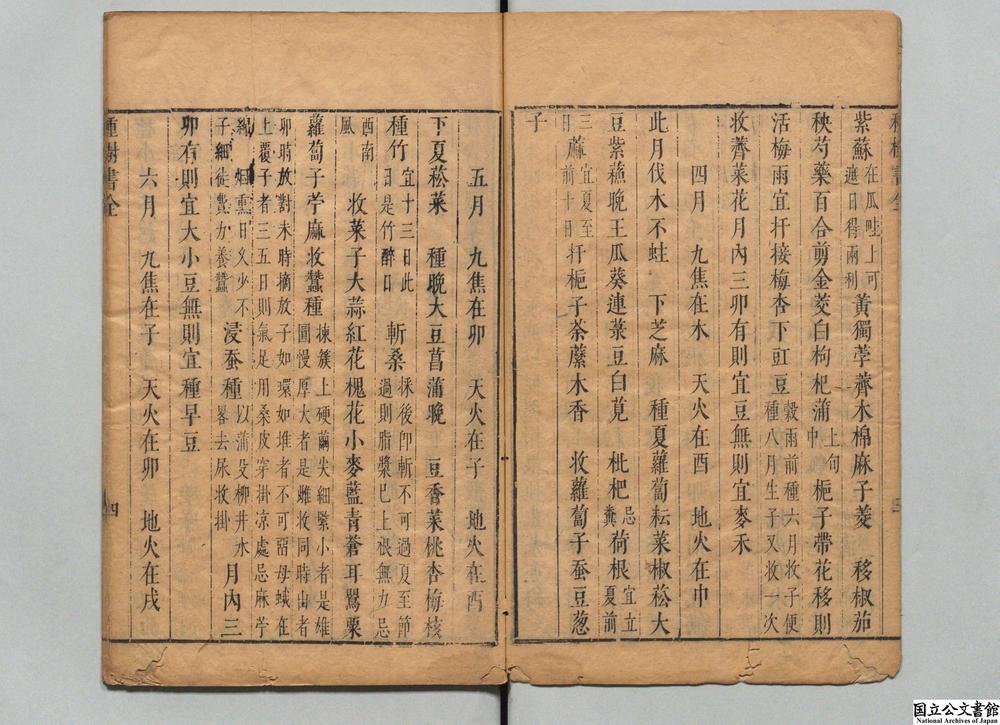 紫蘇在瓜畦上可遮日得兩利黃獨葶薺木棉麻子菱　移椒茄
秧芍藥百合剪金茭白枸杞蒲上旬中梔子帶花移則
活梅雨宜扦接梅杏下豇豆穀雨前種六月收子便種八月生子又收一次
收薺菜花月內三卯有則宜豆無則宜麥禾
四月　九焦在木　天火在酉　地火在申
此月伐木不蛀　下芝麻　種夏蘿蔔耘菜椒菘大
豆紫蘓晚王瓜葵連菉豆白莧　枇杷忌糞荷根宜立夏前
三日蔴宜夏至前十日扦梔子荼蘼木香　收蘿蔔子蚕豆葱
子
五月　九焦在卯　天火在子　地火在酉
下夏菘菜　種晚大豆菖蒲晚　豆香菜桃杏梅核
種竹宜十三日此日是竹醉日　斬桑採後卽斬不可過夏至節過則脂漿已上根無力忌
西南風　收菜子大蒜紅花槐花小麥藍青蒼耳罌粟
蘿蔔子苧麻收蠶種揀簇上硬繭尖細緊小者是雄圓慢厚大者是雌收同時出者
卯時放對未時摘放子如環如堆者不可留母蛾在
上覆子者三五日則氣足用桑皮穿掛凉處忌麻苧
綿　烟熏日久少不子細徒費力養蠶浸蚕種以蒲及柳井水畧去尿收掛　月內三
卯有則宜大小豆無則宜種早豆
六月　九焦在子　天火在卯　地火在戌
種樹書全
四
国立公文書館
National Archives of Japan